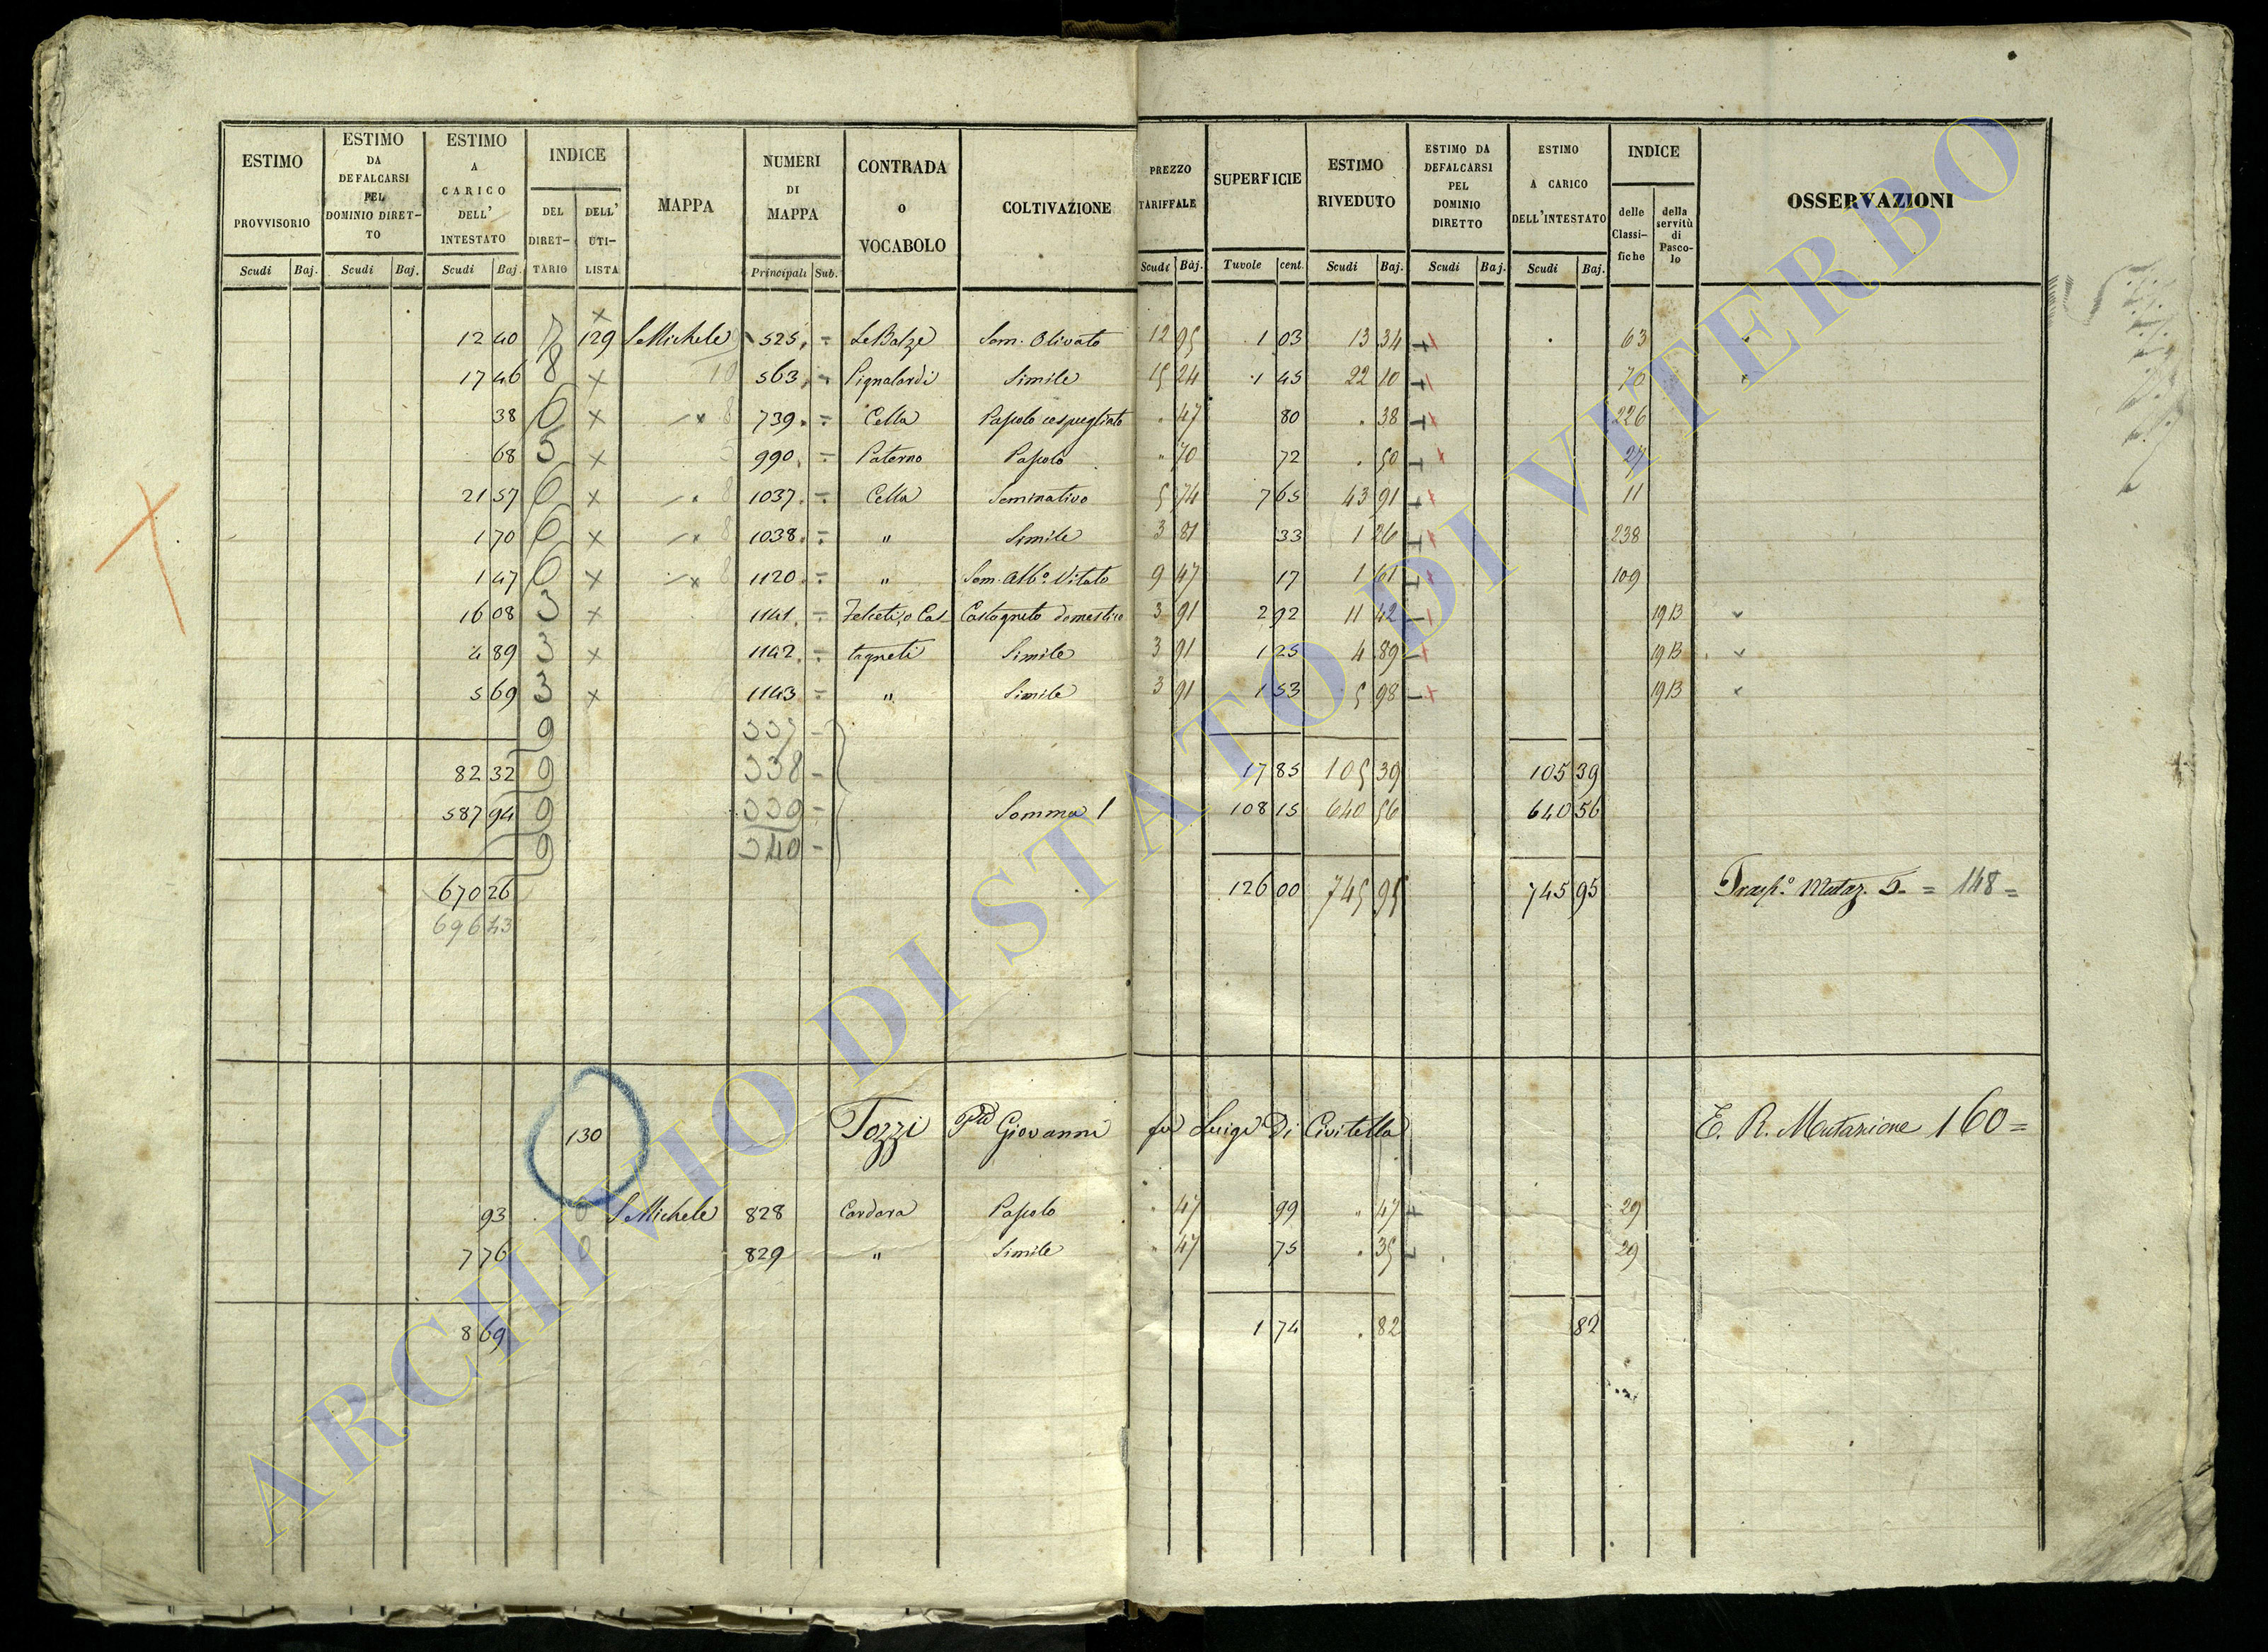 ESTIMO PROVVISORIO | ESTIMO DA DEFALCARSI PEL DOMINIO DIRET-TO | ESTIMO A CARICO DELL' INTESTATO | INDICE | MAPPA | NUMERI DI MAPPA | CONTRADA o VOCABOLO | COLTIVAZIONE | PREZZO TARIFFALE | SUPERFICIE | ESTIMO RIVEDUTO | ESTIMO DA DEFALCARSI PEL DOMINIO DIRETTO | ESTIMO A CARICO DELL'INTESTATO | INDICE | OSSERVAZIONI
DEL DIRET-TARIO | DELL' UTI-LISTA | delle Classi-fiche | della servitù di Pasco-lo
Scudi | Baj. | Scudi | Baj. | Scudi | Baj. | Principali | Sub. | Scudi | Baj. | Tavole | cent. | Scudi | Baj. | Scudi | Baj. | Scudi | Baj.
12 40 7 129 S. Michele 525 = Le Balze Sem. Olivato 12 95 1 03 13 34 63
17 46 8 × 10 563 Pignalardi Simile 15 24 1 45 22 10 70
38 6 × 8 739 = Cella Pascolo cespugliato " 47 80 " 38 226
68 5 × 5 990 = Paterno Pascolo " 70 72 " 50 27
21 57 6 × 8 1037 = Cella Seminativo 5 74 7 65 43 91 11
1 70 6 × 8 1038 = " Simile 3 81 33 1 26 238
1 47 6 × 8 1120 = " Sem. Alb.º Vitato 9 47 17 1 61 109
16 08 3 × 1141 = Felceti, o Cas Castagneto domestico 3 91 2 92 11 42 19 B
4 89 3 × 1142 = tagneti Simile 3 91 1 25 4 89 19 B
5 69 3 × 1143 = " Simile 3 91 1 53 5 98 19 B
9 337 -
82 32 9 338 - 17 85 105 39 105 39
587 94 9 339 - Somma 1 108 15 640 56 640 56
9 340 -
670 26 126 00 745 95 745 95 Trasp.º Mutaz. 5. = 148 =
696 43
130 Tozzi Giovanni fu Luigi Di Civitella E. R. Mutazione 160 =
93 S. Michele 828 Cardara Pascolo " 47 99 " 47 29
7 76 829 " Simile " 47 75 " 35 29
8 69 1 74 " 82 82
ARCHIVIO DI STATO DI VITERBO